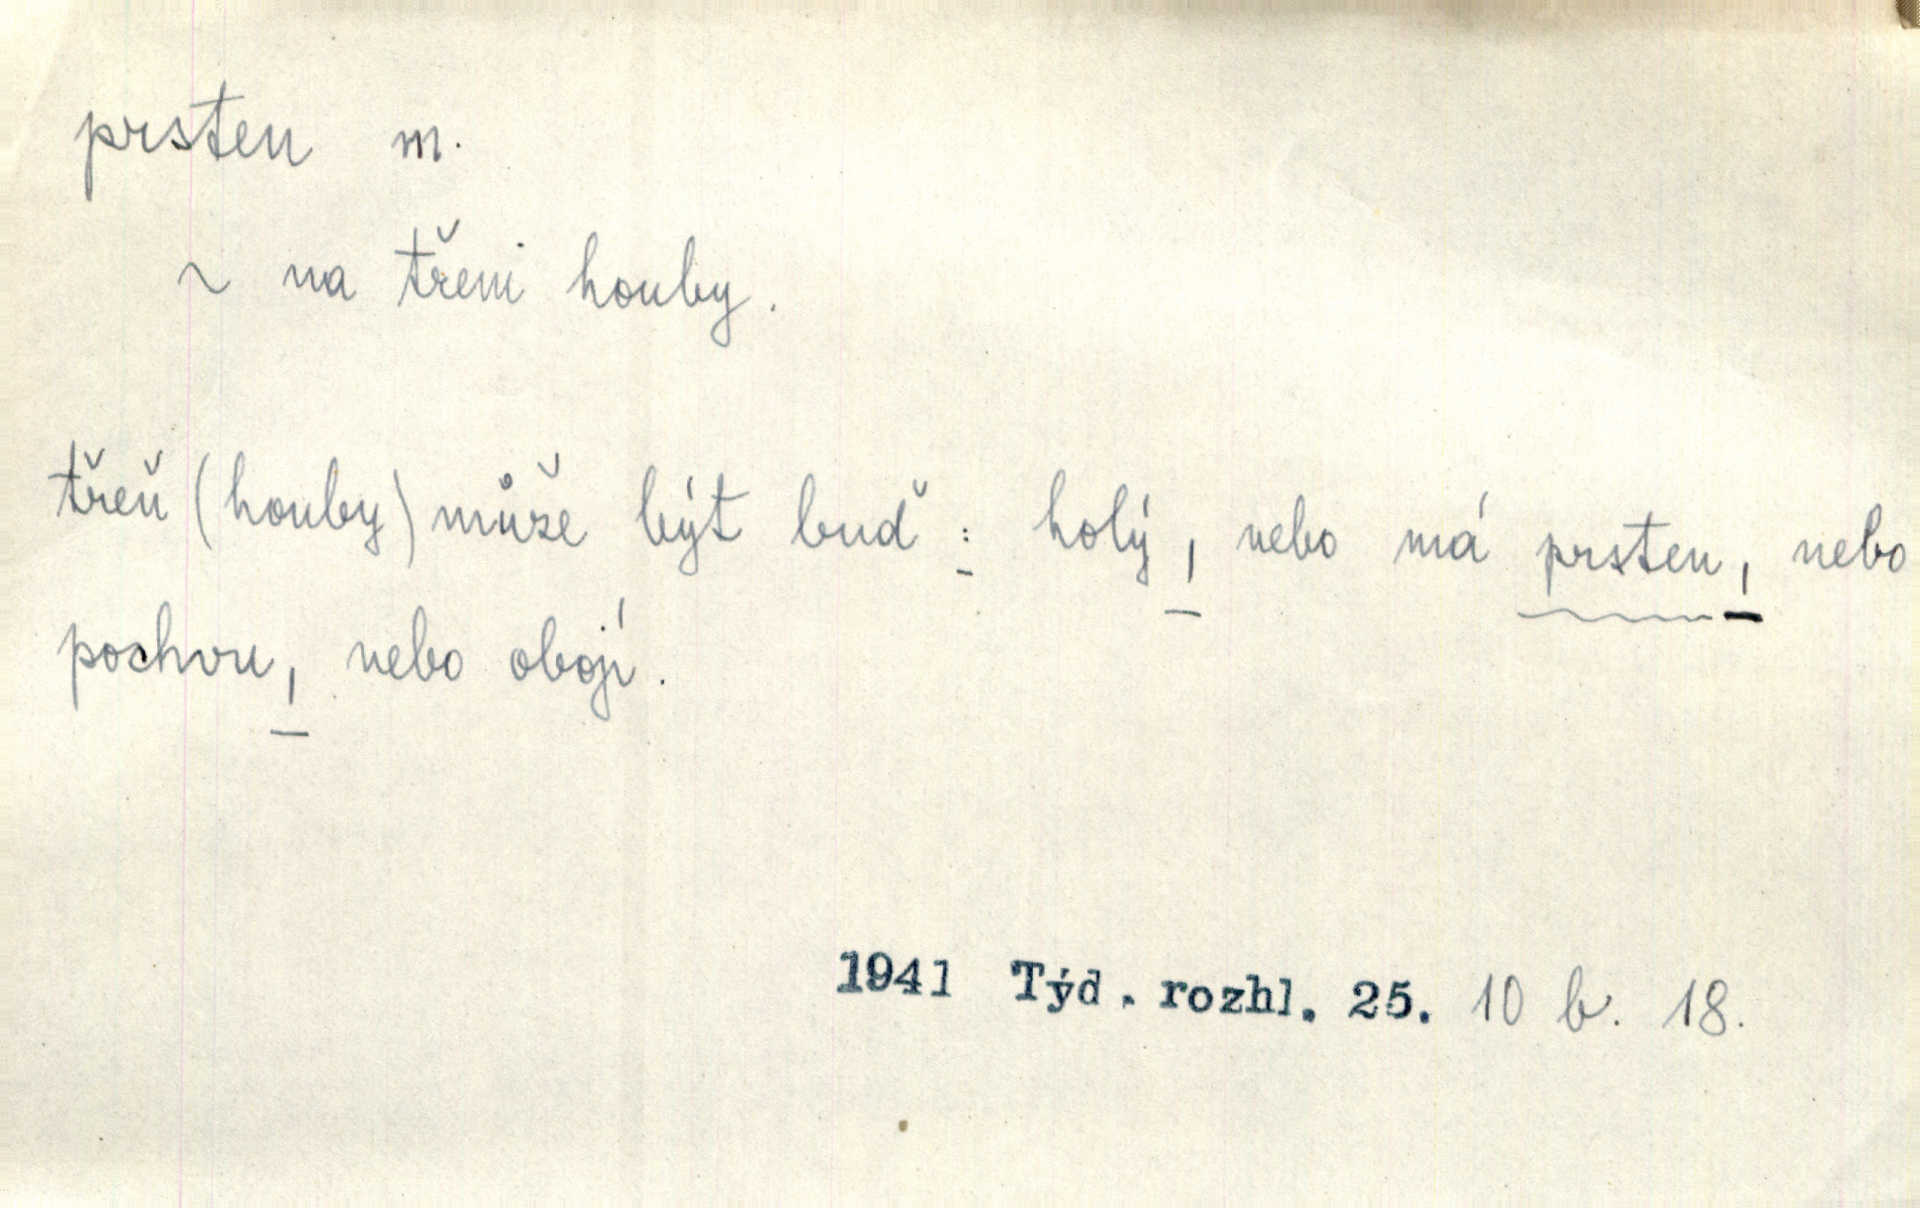 prsten m.
~ na třeni houby.
třeň (houby) může být buď : holý, nebo má prsten, nebo
pochvu, nebo obojí.
1941 Týd. rozhl. 25. 10 b. 18.